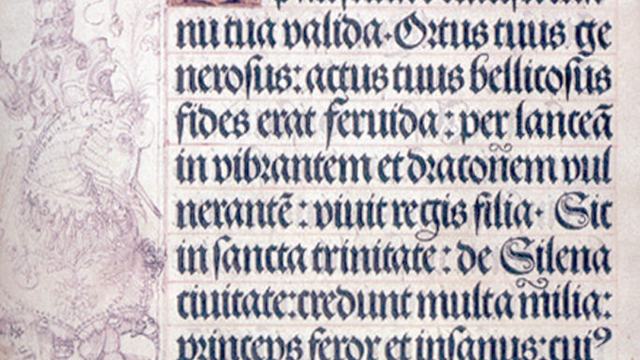 nu tua valida. Ortus tuus ge
nerosus: actus tuus bellicosus
fides erat feruida: per lanceā
in vibrantem et dracoñem vul
nerantē: viuit regis filia. Sic
in sancta trinitate: de Silena
ciuitate: credunt multa m̃ilia:
princeps ferox et insanus: cuiꝰ